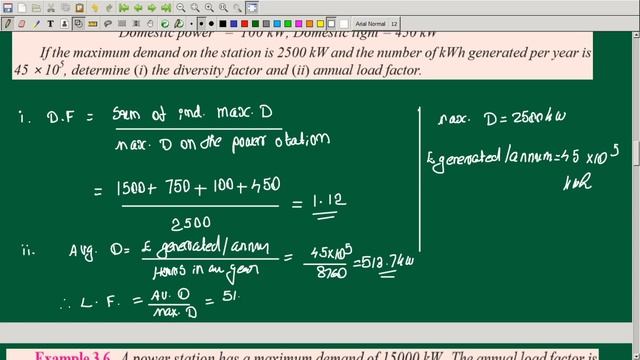 Arial Normal 12
Domestic power = 100 kW, Domestic light = 450 kW
If the maximum demand on the station is 2500 kW and the number of kWh generated per year is
45 × 10⁵, determine (i) the diversity factor and (ii) annual load factor.
i. D.F = Sum of ind. max. D / max. D on the power station
= 1500 + 750 + 100 + 450 / 2500 = 1.12
ii. Avg. D = E generated/annum / Hours in an year = 45×10⁵ / 8760 = 513.7 kW
∴ L.F. = AV. D / max. D = 51.
max. D = 2500 kW
E generated/annum = 45 × 10⁵
kWh
Example 3.6. A power station has a maximum demand of 15000 kW. The annual load factor is